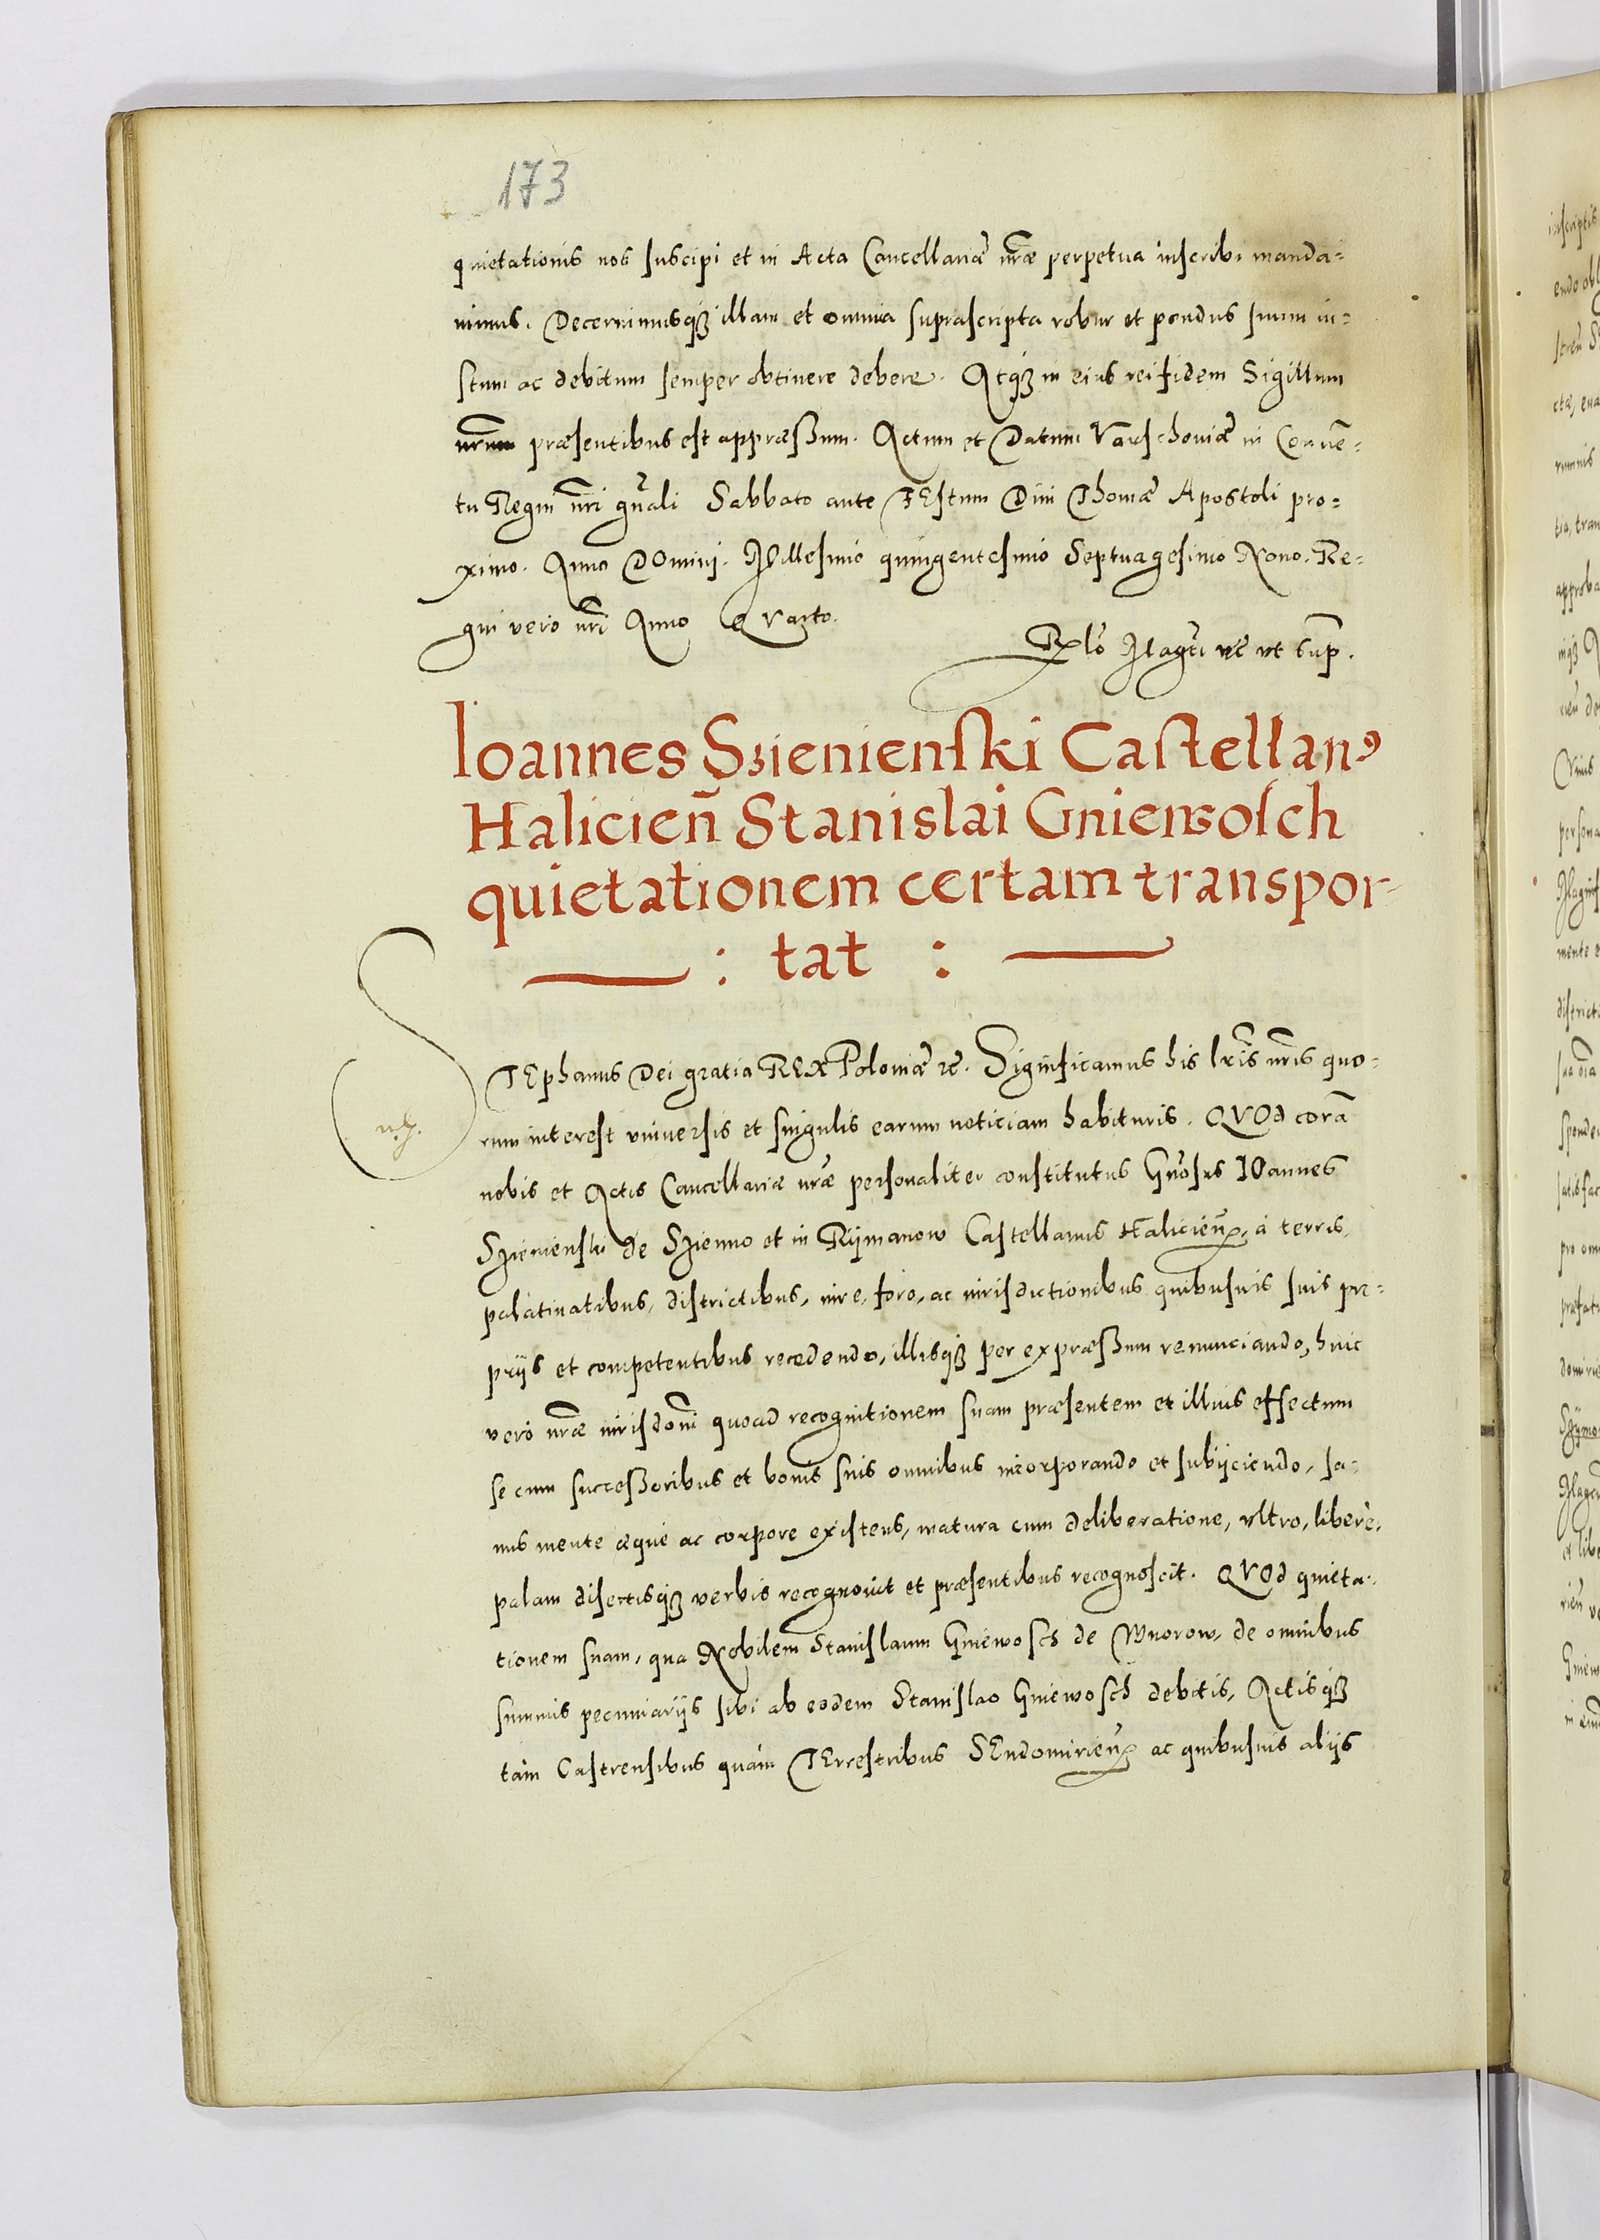 173
quietationis nos suscipi et in Acta Cancellariæ nr̃æ perpetua inscribi manda=
uimus. Decernimusq3 illam et omnia suprascripta robur et pondus suum iu=
stum ac debitum semper obtinere debere. Atq3 in eius rei fidem Sigillum
nrũm præsentibus est appræssum. Actum et Datum Varschouiæ in Conuẽ=
tu Regni nr̃i gñali Sabbato ante FEstum Diui Thomæ Apostoli pro=
ximo. Anno DOmini. Millesimo quingentesimo Septuagesimo Nono. Re=
gni vero nr̃i Anno QVarto.
ut sup̃.
Ioannes Szienienski Castellan⁹
Halicieñ Stanislai Gniewosch
quietationem certam transpor-
: tat :
STEphanus Dei gratia REX Poloniæ etc̃. Significamus his lrĩs nrĩs quo=
rum interest vniuersis et singulis earum noticiam habituris. QVOd corã
nobis et Actis Cancellariæ nrǣ personaliter constitutus Gñosus IOannes
Szienienski de Szienno et in Rijmanow Castellanus Halicieñ, à terris,
palatinatibus, districtibus, iure, foro, ac iurisdictionibus quibusuis suis pro=
prijs et competentibus recedendo, illisq3 per expræssum renunciando, huic
vero nrǣ iurisdoñi quoad recognitionem suam præsentem et illius effectum
se cum successoribus et bonis suis omnibus incorporando et subijciendo, sa=
nus mente æque ac corpore existens, matura cum deliberatione, vltro, libere,
palam disertisq3 verbis recognouit et præsentibus recognoscit. QVOd quieta=
tionem suam, qua Nobilem Stanislaum Gniewosch de Wnorow, de omnibus
summis pecuniarijs sibi ab eodem Stanislao Gniewosch debitis, Actisq3
tàm Castrensibus quàm TErrestribus SEndomirieñ ac quibusuis alijs